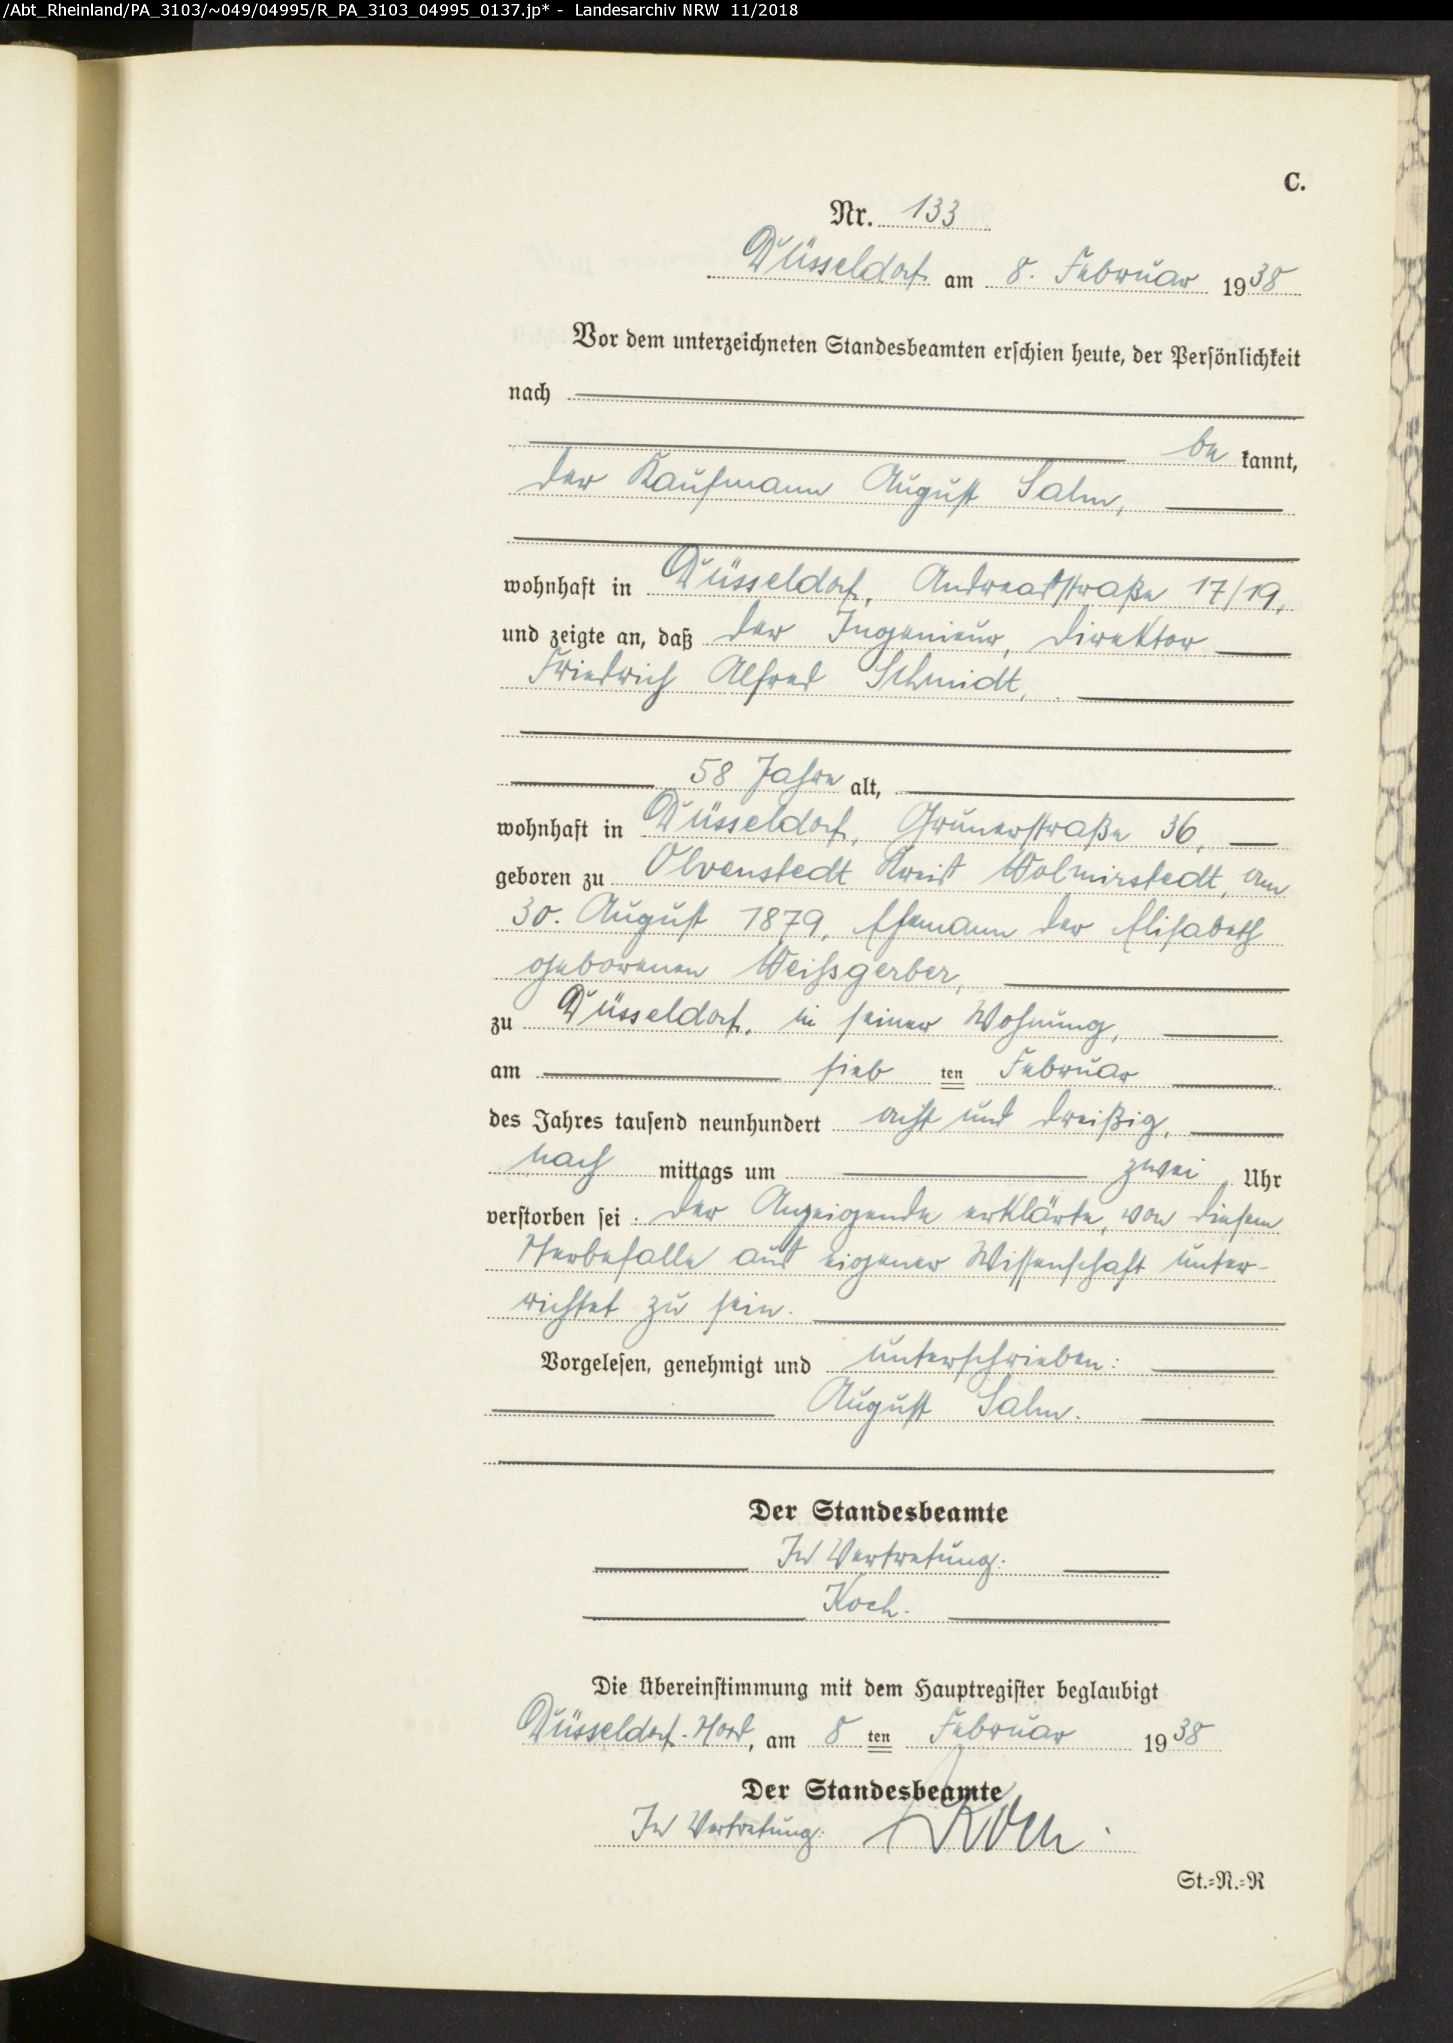 /Abt_Rheinland/PA_3103/~049/04995/R_PA_3103_04995_0137.jp* - Landesarchiv NRW 11/2018
C.
Nr. 133
Düsseldorf am 8. Februar 1938
Vor dem unterzeichneten Standesbeamten erschien heute, der Persönlichkeit
nach
be kannt,
der Kaufmann August Salm,
wohnhaft in Düsseldorf, Andreasstraße 17/19,
und zeigte an, daß der Ingenieur, Direktor
Friedrich Alfred Schmidt,
58 Jahre alt,
wohnhaft in Düsseldorf, Grunerstraße 36,
geboren zu Olvenstedt Kreis Wolmirstedt, am
30. August 1879, Ehemann der Elisabeth
geborenen Weißgerber,
zu Düsseldorf, in seiner Wohnung,
am sieb ten Februar
des Jahres tausend neunhundert acht und dreißig,
nach mittags um zwei Uhr
verstorben sei. Der Anzeigende erklärte, von diesem
Sterbefalle aus eigener Wissenschaft unter-
richtet zu sein.
Vorgelesen, genehmigt und unterschrieben:
August Salm.
Der Standesbeamte
In Vertretung:
Koch.
Die Übereinstimmung mit dem Hauptregister beglaubigt
Düsseldorf-Nord, am 8 ten Februar 1938
Der Standesbeamte
In Vertretung: Koch.
St.=N.=R